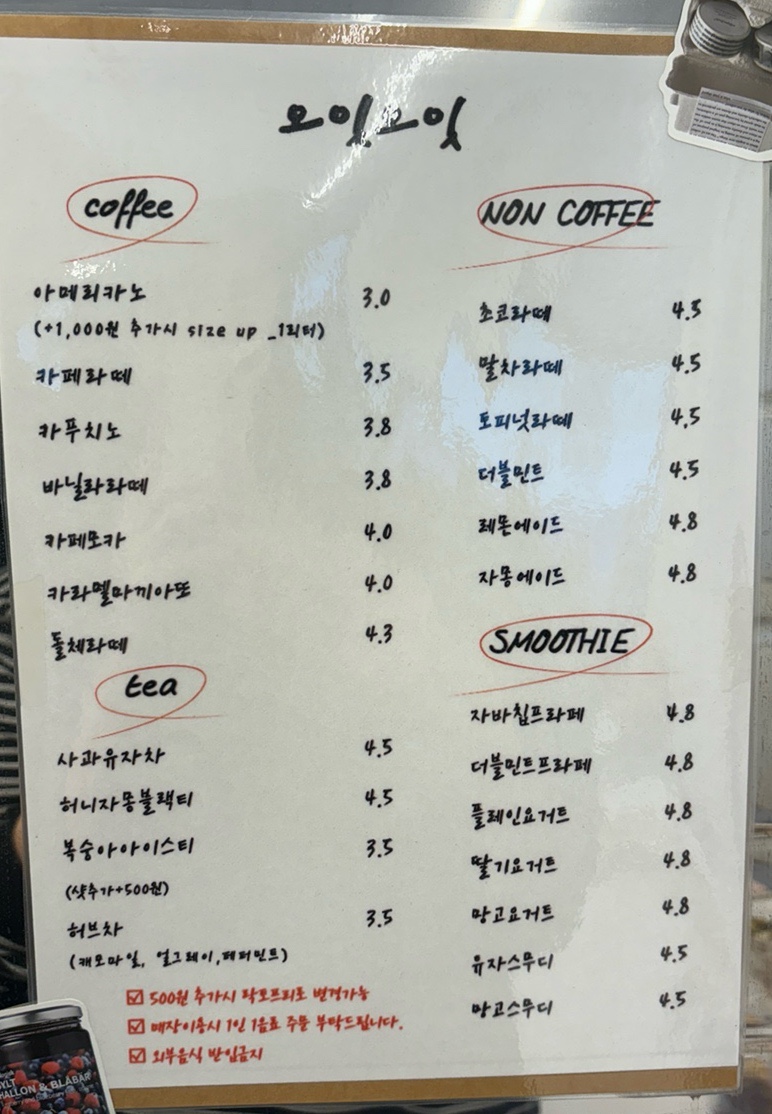 오잇오잇
coffee
아메리카노 3.0
(+1,000원 추가시 size up _1리터)
카페라떼 3.5
카푸치노 3.8
바닐라라떼 3.8
카페모카 4.0
카라멜마끼아또 4.0
돌체라떼 4.3
tea
사과유자차 4.5
허니자몽블랙티 4.5
복숭아아이스티 3.5
(샷추가+500원)
허브차 3.5
(캐모마일, 얼그레이, 페퍼민트)
☑ 500원 추가시 락토프리로 변경가능
☑ 매장이용시 1인 1음료 주문 부탁드립니다.
☑ 외부음식 반입금지
NON COFFEE
초코라떼 4.5
말차라떼 4.5
토피넛라떼 4.5
더블민트 4.5
레몬에이드 4.8
자몽에이드 4.8
SMOOTHIE
자바칩프라페 4.8
더블민트프라페 4.8
플레인요거트 4.8
딸기요거트 4.8
망고요거트 4.8
유자스무디 4.5
망고스무디 4.5
SYLT
HALLON & BLÅBÄR